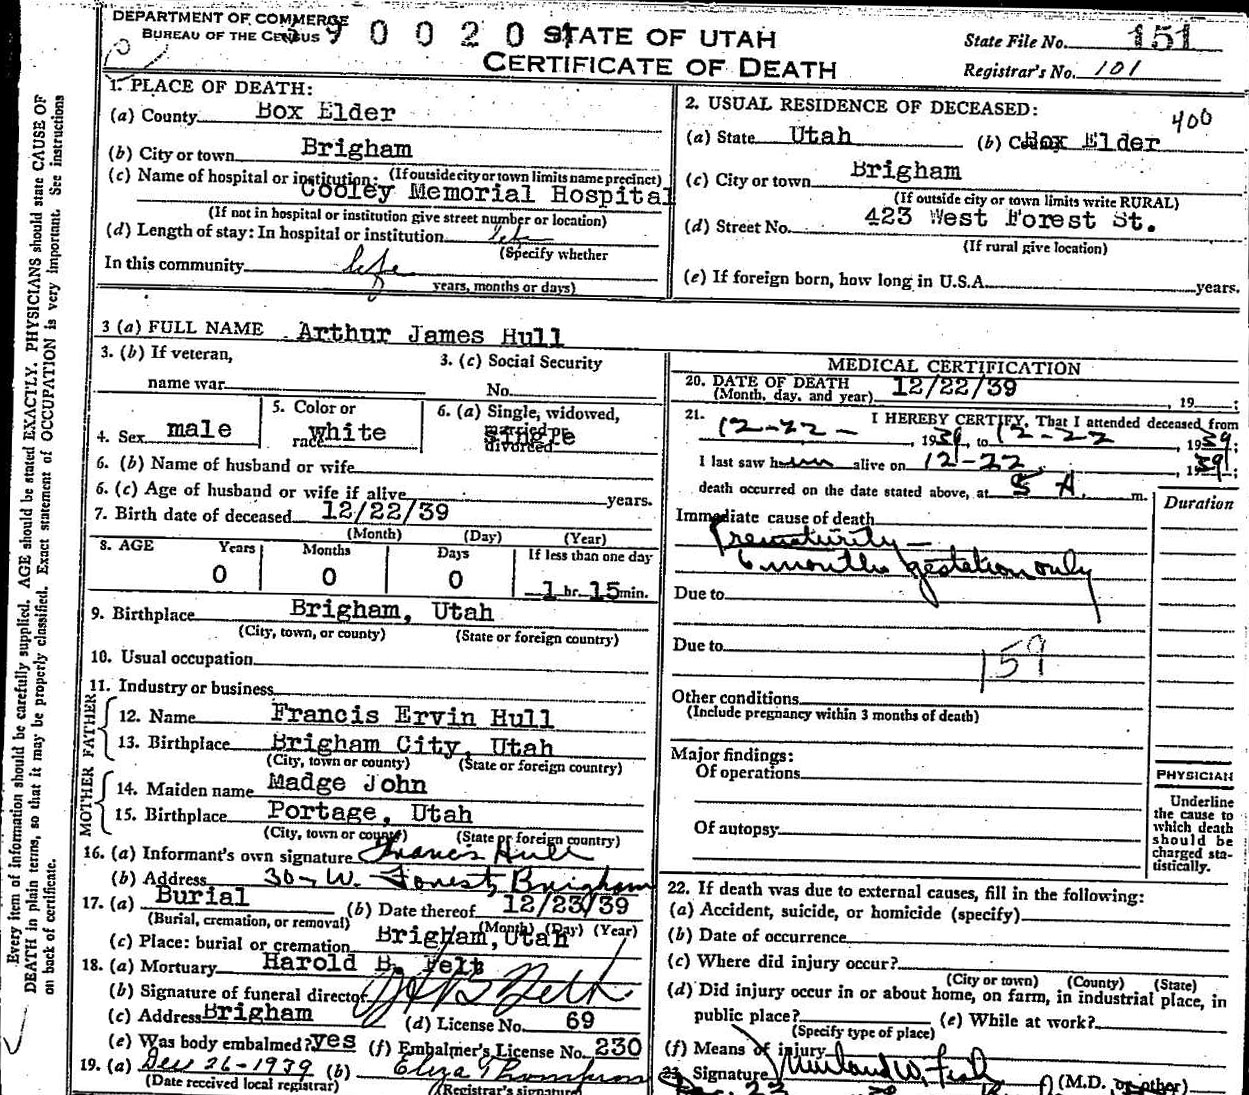 Every item of information should be carefully supplied. AGE should be stated EXACTLY. PHYSICIANS should state CAUSE OF
DEATH in plain terms, so that it may be properly classified. Exact statement of OCCUPATION is very important. See instructions
on back of certificate.
DEPARTMENT OF COMMERCE
BUREAU OF THE CENSUS
9 0 0 2 0
STATE OF UTAH
CERTIFICATE OF DEATH
State File No. 151
Registrar's No. 101
1. PLACE OF DEATH:
(a) County Box Elder
(b) City or town Brigham
(If outside city or town limits name precinct)
(c) Name of hospital or institution: Cooley Memorial Hospital
(If not in hospital or institution give street number or location)
(d) Length of stay: In hospital or institution
(Specify whether
In this community life
years, months or days)
2. USUAL RESIDENCE OF DECEASED:
400
(a) State Utah (b) Co Box Elder
(c) City or town Brigham
(If outside city or town limits write RURAL)
(d) Street No. 423 West Forest St.
(If rural give location)
(e) If foreign born, how long in U.S.A. years.
3 (a) FULL NAME Arthur James Hull
3. (b) If veteran, name war
3. (c) Social Security No.
4. Sex male
5. Color or race white
6. (a) Single, widowed, married or divorced single
6. (b) Name of husband or wife
6. (c) Age of husband or wife if alive years.
7. Birth date of deceased 12/22/39
(Month) (Day) (Year)
8. AGE Years Months Days If less than one day
0 0 0 1 hr. 15 min.
9. Birthplace Brigham, Utah
(City, town, or county) (State or foreign country)
10. Usual occupation
11. Industry or business
FATHER
12. Name Francis Ervin Hull
13. Birthplace Brigham City, Utah
(City, town or county) (State or foreign country)
MOTHER
14. Maiden name Madge John
15. Birthplace Portage, Utah
(City, town or county) (State or foreign country)
16. (a) Informant's own signature Francis Hull
(b) Address W. Forest, Brigham
17. (a) Burial (b) Date thereof 12/23/39
(Burial, cremation, or removal) (Month) (Day) (Year)
(c) Place: burial or cremation Brigham, Utah
18. (a) Mortuary Harold B. Felt
(b) Signature of funeral director H B Felt
(c) Address Brigham (d) License No. 69
(e) Was body embalmed? yes (f) Embalmer's License No. 230
19. (a) Dec 26-1939 (b) Eliza Thompson
(Date received local registrar) (Registrar's signature)
MEDICAL CERTIFICATION
20. DATE OF DEATH 12/22/39
(Month, day, and year) , 19 ;
21. I HEREBY CERTIFY, That I attended deceased from
12-22- , 1939, to 12-22 , 1939;
I last saw him alive on 12-22 , 1939;
death occurred on the date stated above, at 5 A. m.
Duration
Immediate cause of death
Prematurity -
6 months gestation only
Due to
Due to
159
Other conditions
(Include pregnancy within 3 months of death)
Major findings:
Of operations
Of autopsy
PHYSICIAN
Underline
the cause to
which death
should be
charged sta-
tistically.
22. If death was due to external causes, fill in the following:
(a) Accident, suicide, or homicide (specify)
(b) Date of occurrence
(c) Where did injury occur?
(City or town) (County) (State)
(d) Did injury occur in or about home, on farm, in industrial place, in
public place? (e) While at work?
(Specify type of place)
(f) Means of injury
23. Signature (M.D. or other)